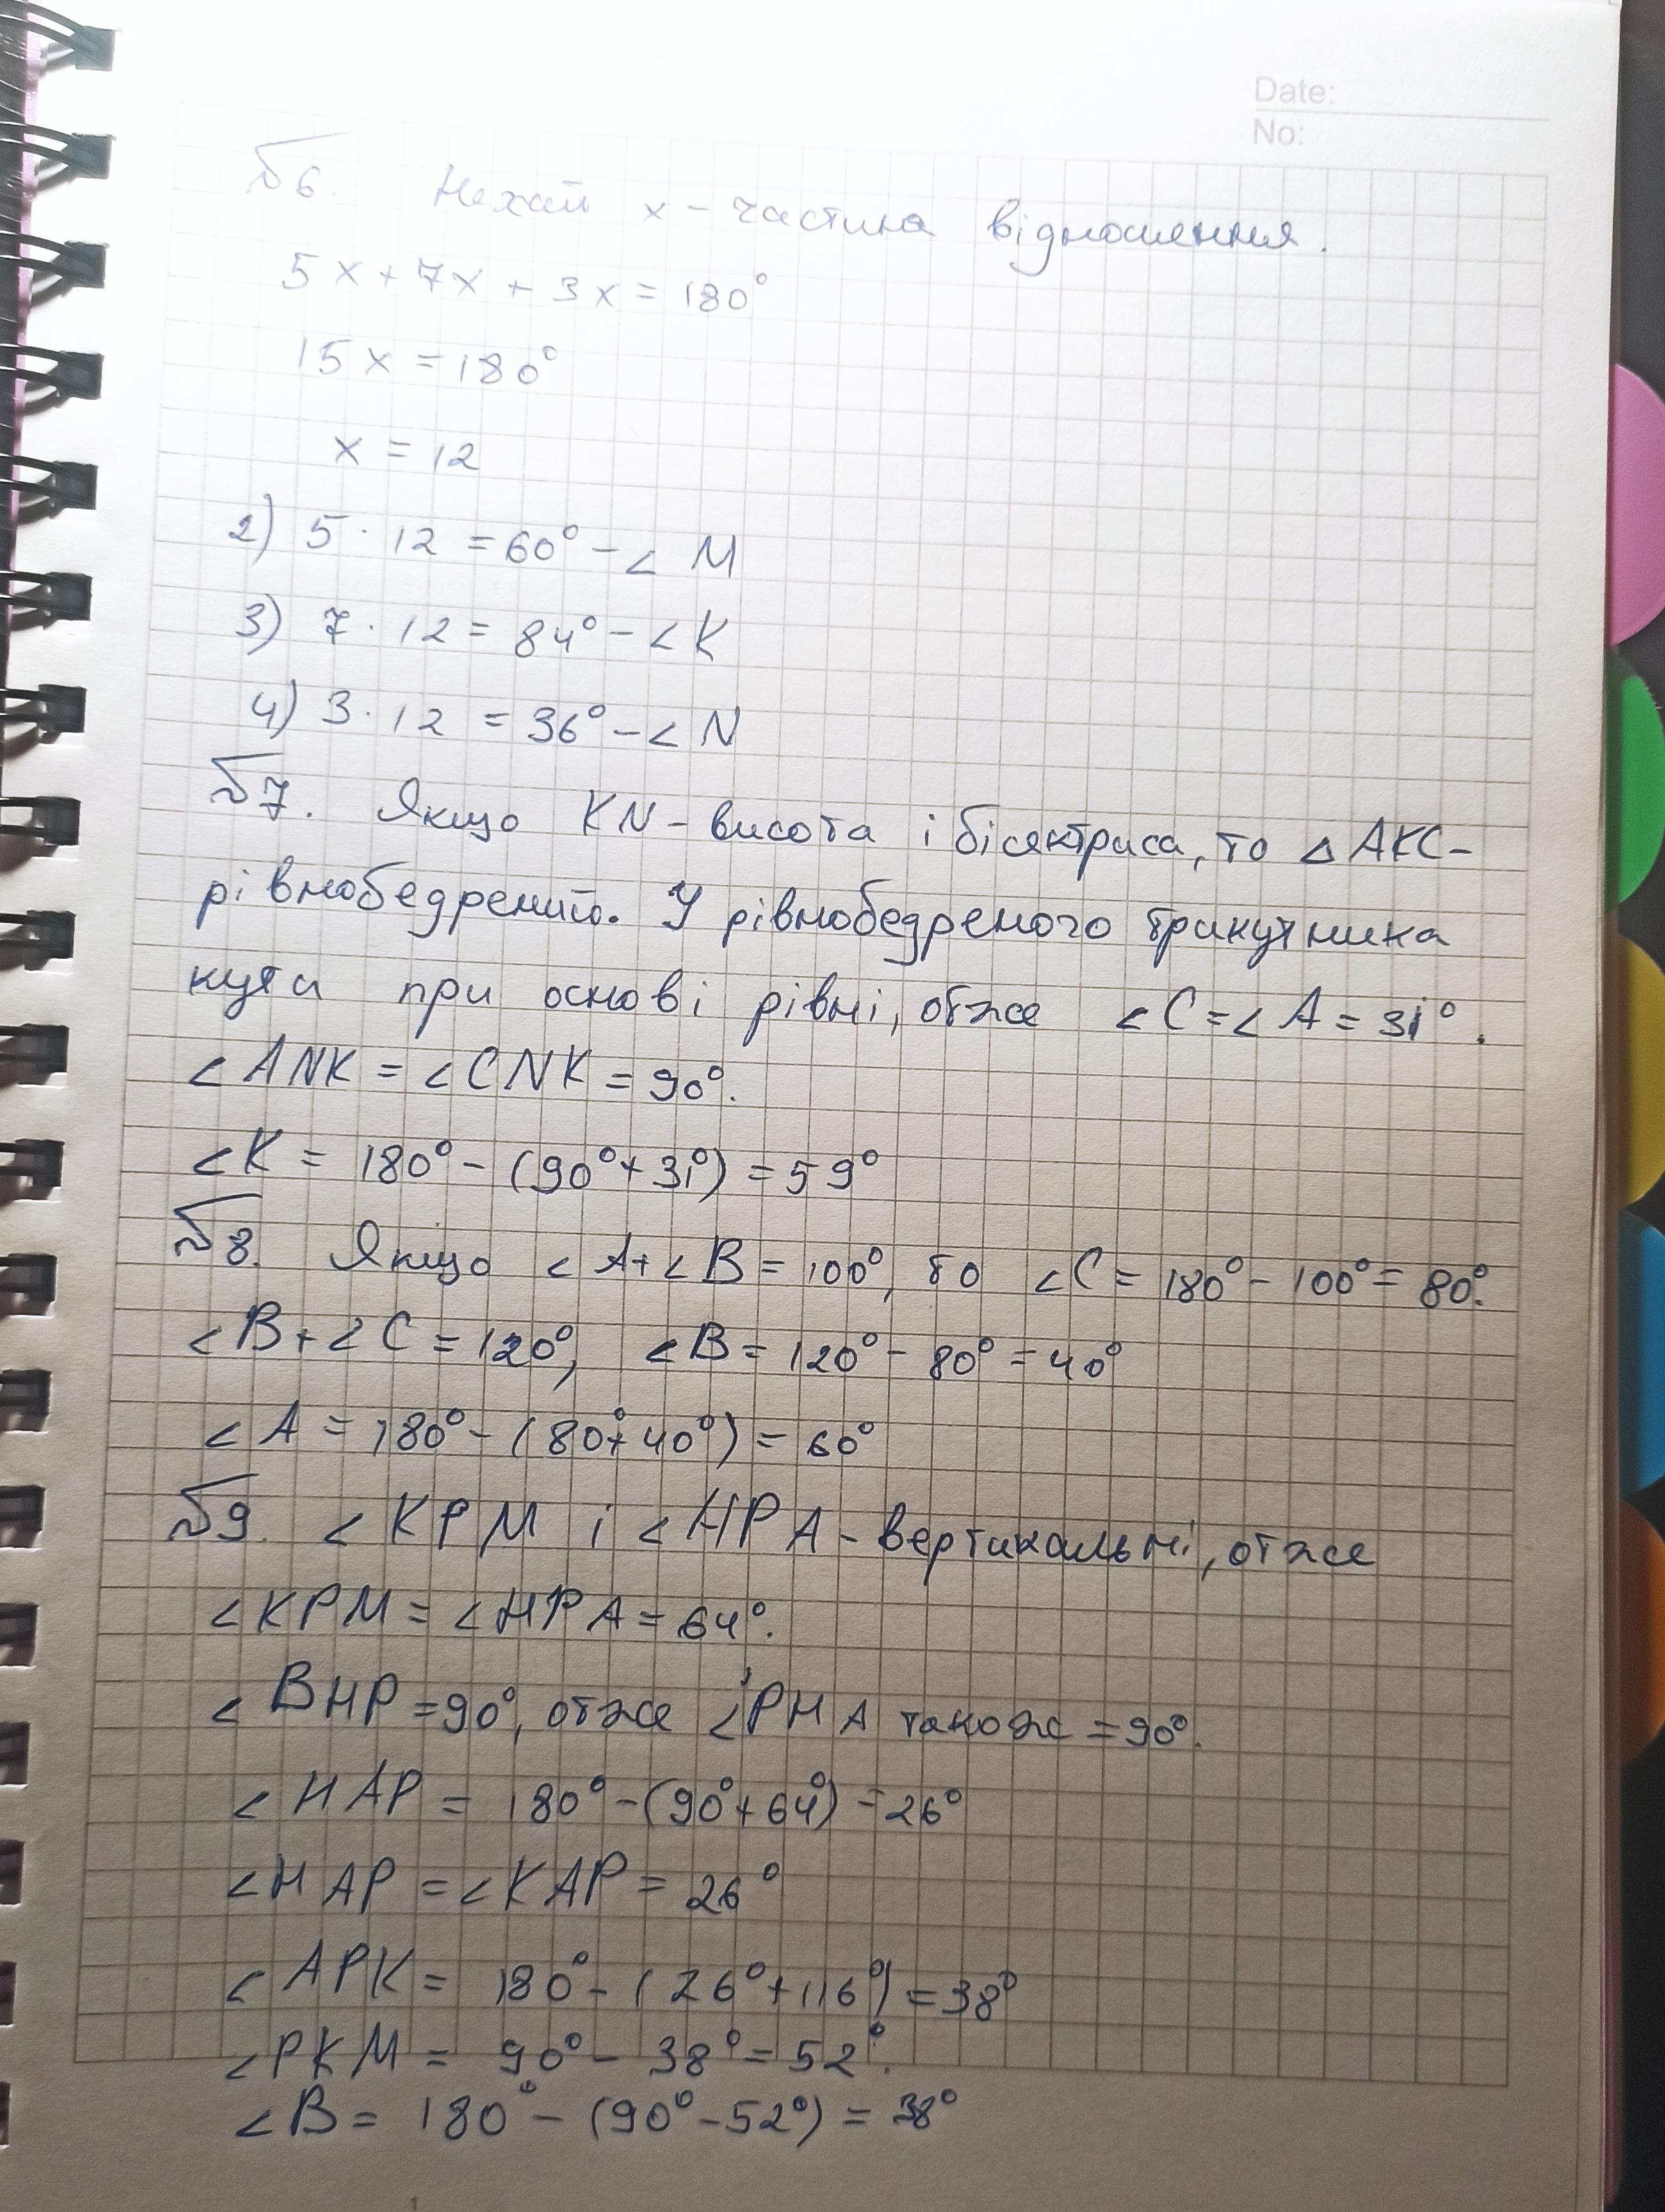 Date:
No:
№6. Нехай x - частина відношення.
5x + 7x + 3x = 180°
15x = 180°
x = 12
2) 5 · 12 = 60° - ∠ M
3) 7 · 12 = 84° - ∠ K
4) 3 · 12 = 36° - ∠ N
№7. Якщо KN - висота і бісектриса, то △ AKC -
рівнобедрений. У рівнобедреного трикутника
кути при основі рівні, отже ∠C = ∠A = 31°.
∠ANK = ∠CNK = 90°.
∠K = 180° - (90° + 31°) = 59°
№8. Якщо ∠A + ∠B = 100°, то ∠C = 180° - 100° = 80°.
∠B + ∠C = 120°, ∠B = 120° - 80° = 40°
∠A = 180° - (80° + 40°) = 60°
№9. ∠KPM і ∠HPA - вертикальні, отже
∠KPM = ∠HPA = 64°.
∠BHP = 90°, отже ∠PHA також = 90°.
∠HAP = 180° - (90° + 64°) = 26°
∠HAP = ∠KAP = 26°
∠APK = 180° - (26° + 116°) = 38°
∠PKM = 90° - 38° = 52°.
∠B = 180° - (90° - 52°) = 38°